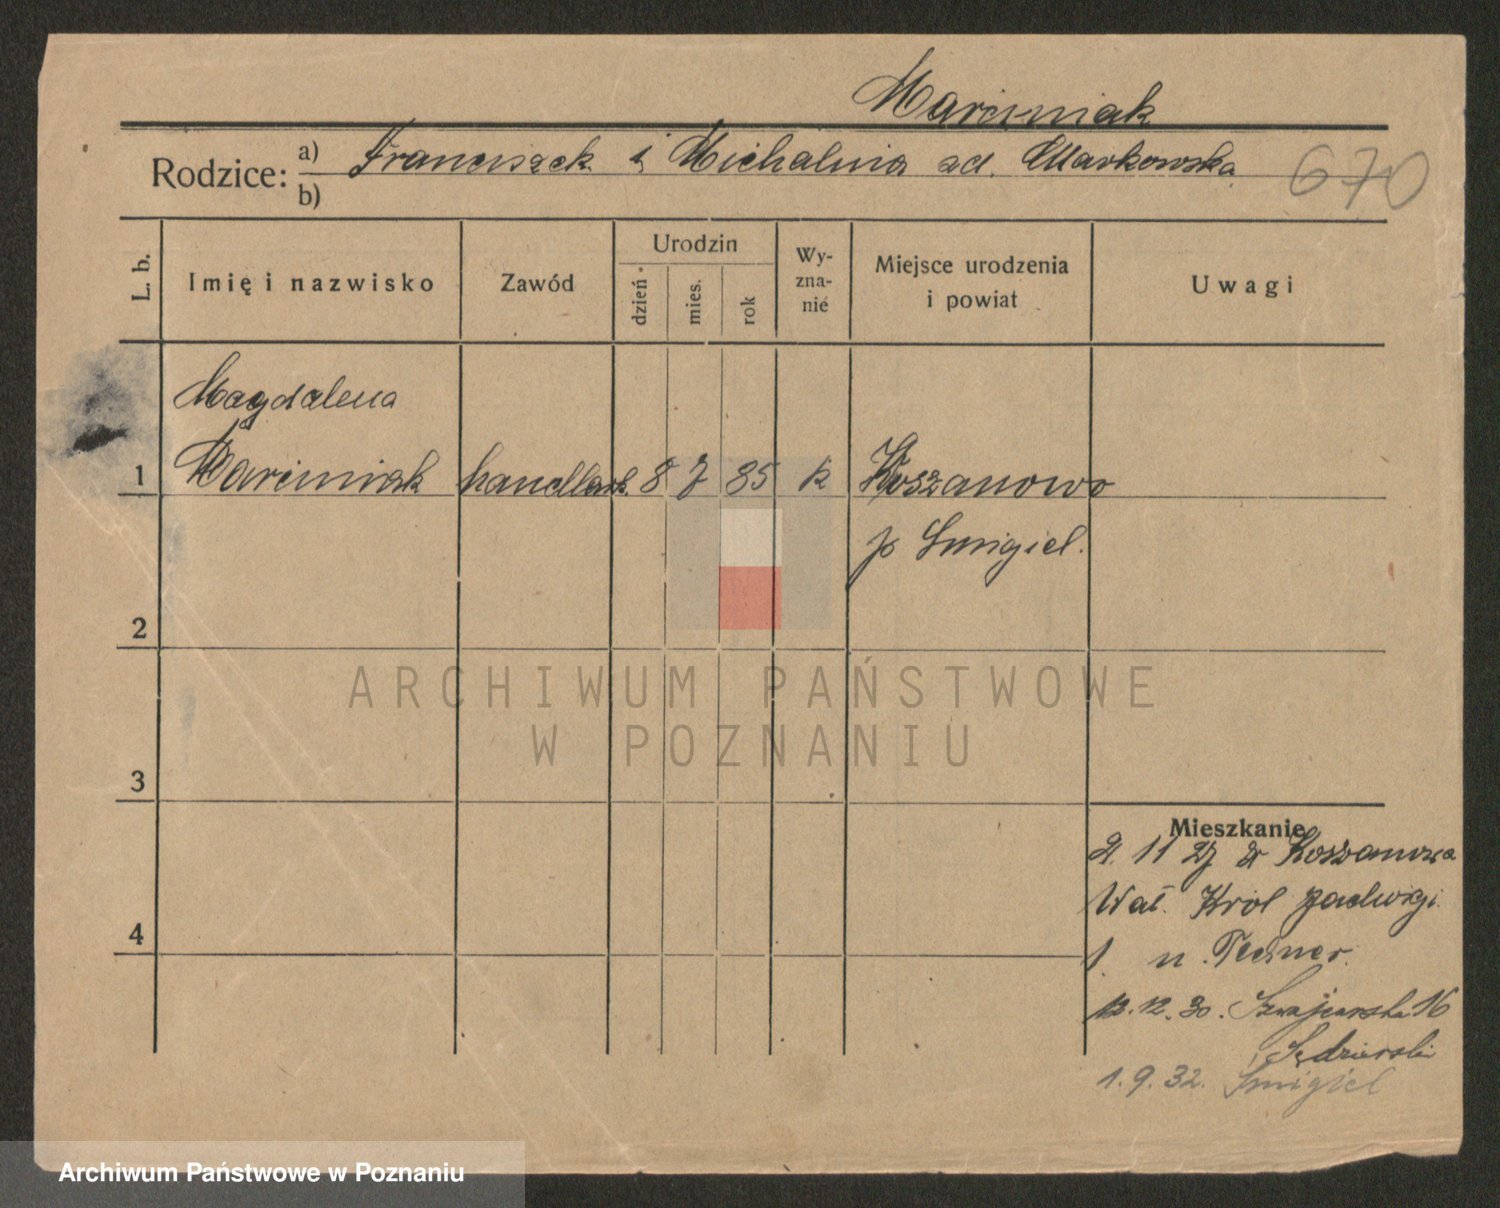 Marciniak
Rodzice: a) Franciszek i Michalina zd. Markowska 670
b)
L. b. Imię i nazwisko Zawód Urodzin dzień mies. rok Wy-zna-nié Miejsce urodzenia i powiat Uwagi
Magdalena
1 Marciniak handlark. 8 7 85 k Koszanowo
p Śmigiel.
2
3
Mieszkanie
11 27 z Koszanowa
Wał. Król Jadwigi
4
1. u
12.12.30. Szwajcarska 16
1.9.32. Śmigiel
ARCHIWUM PAŃSTWOWE
W POZNANIU
Archiwum Państwowe w Poznaniu